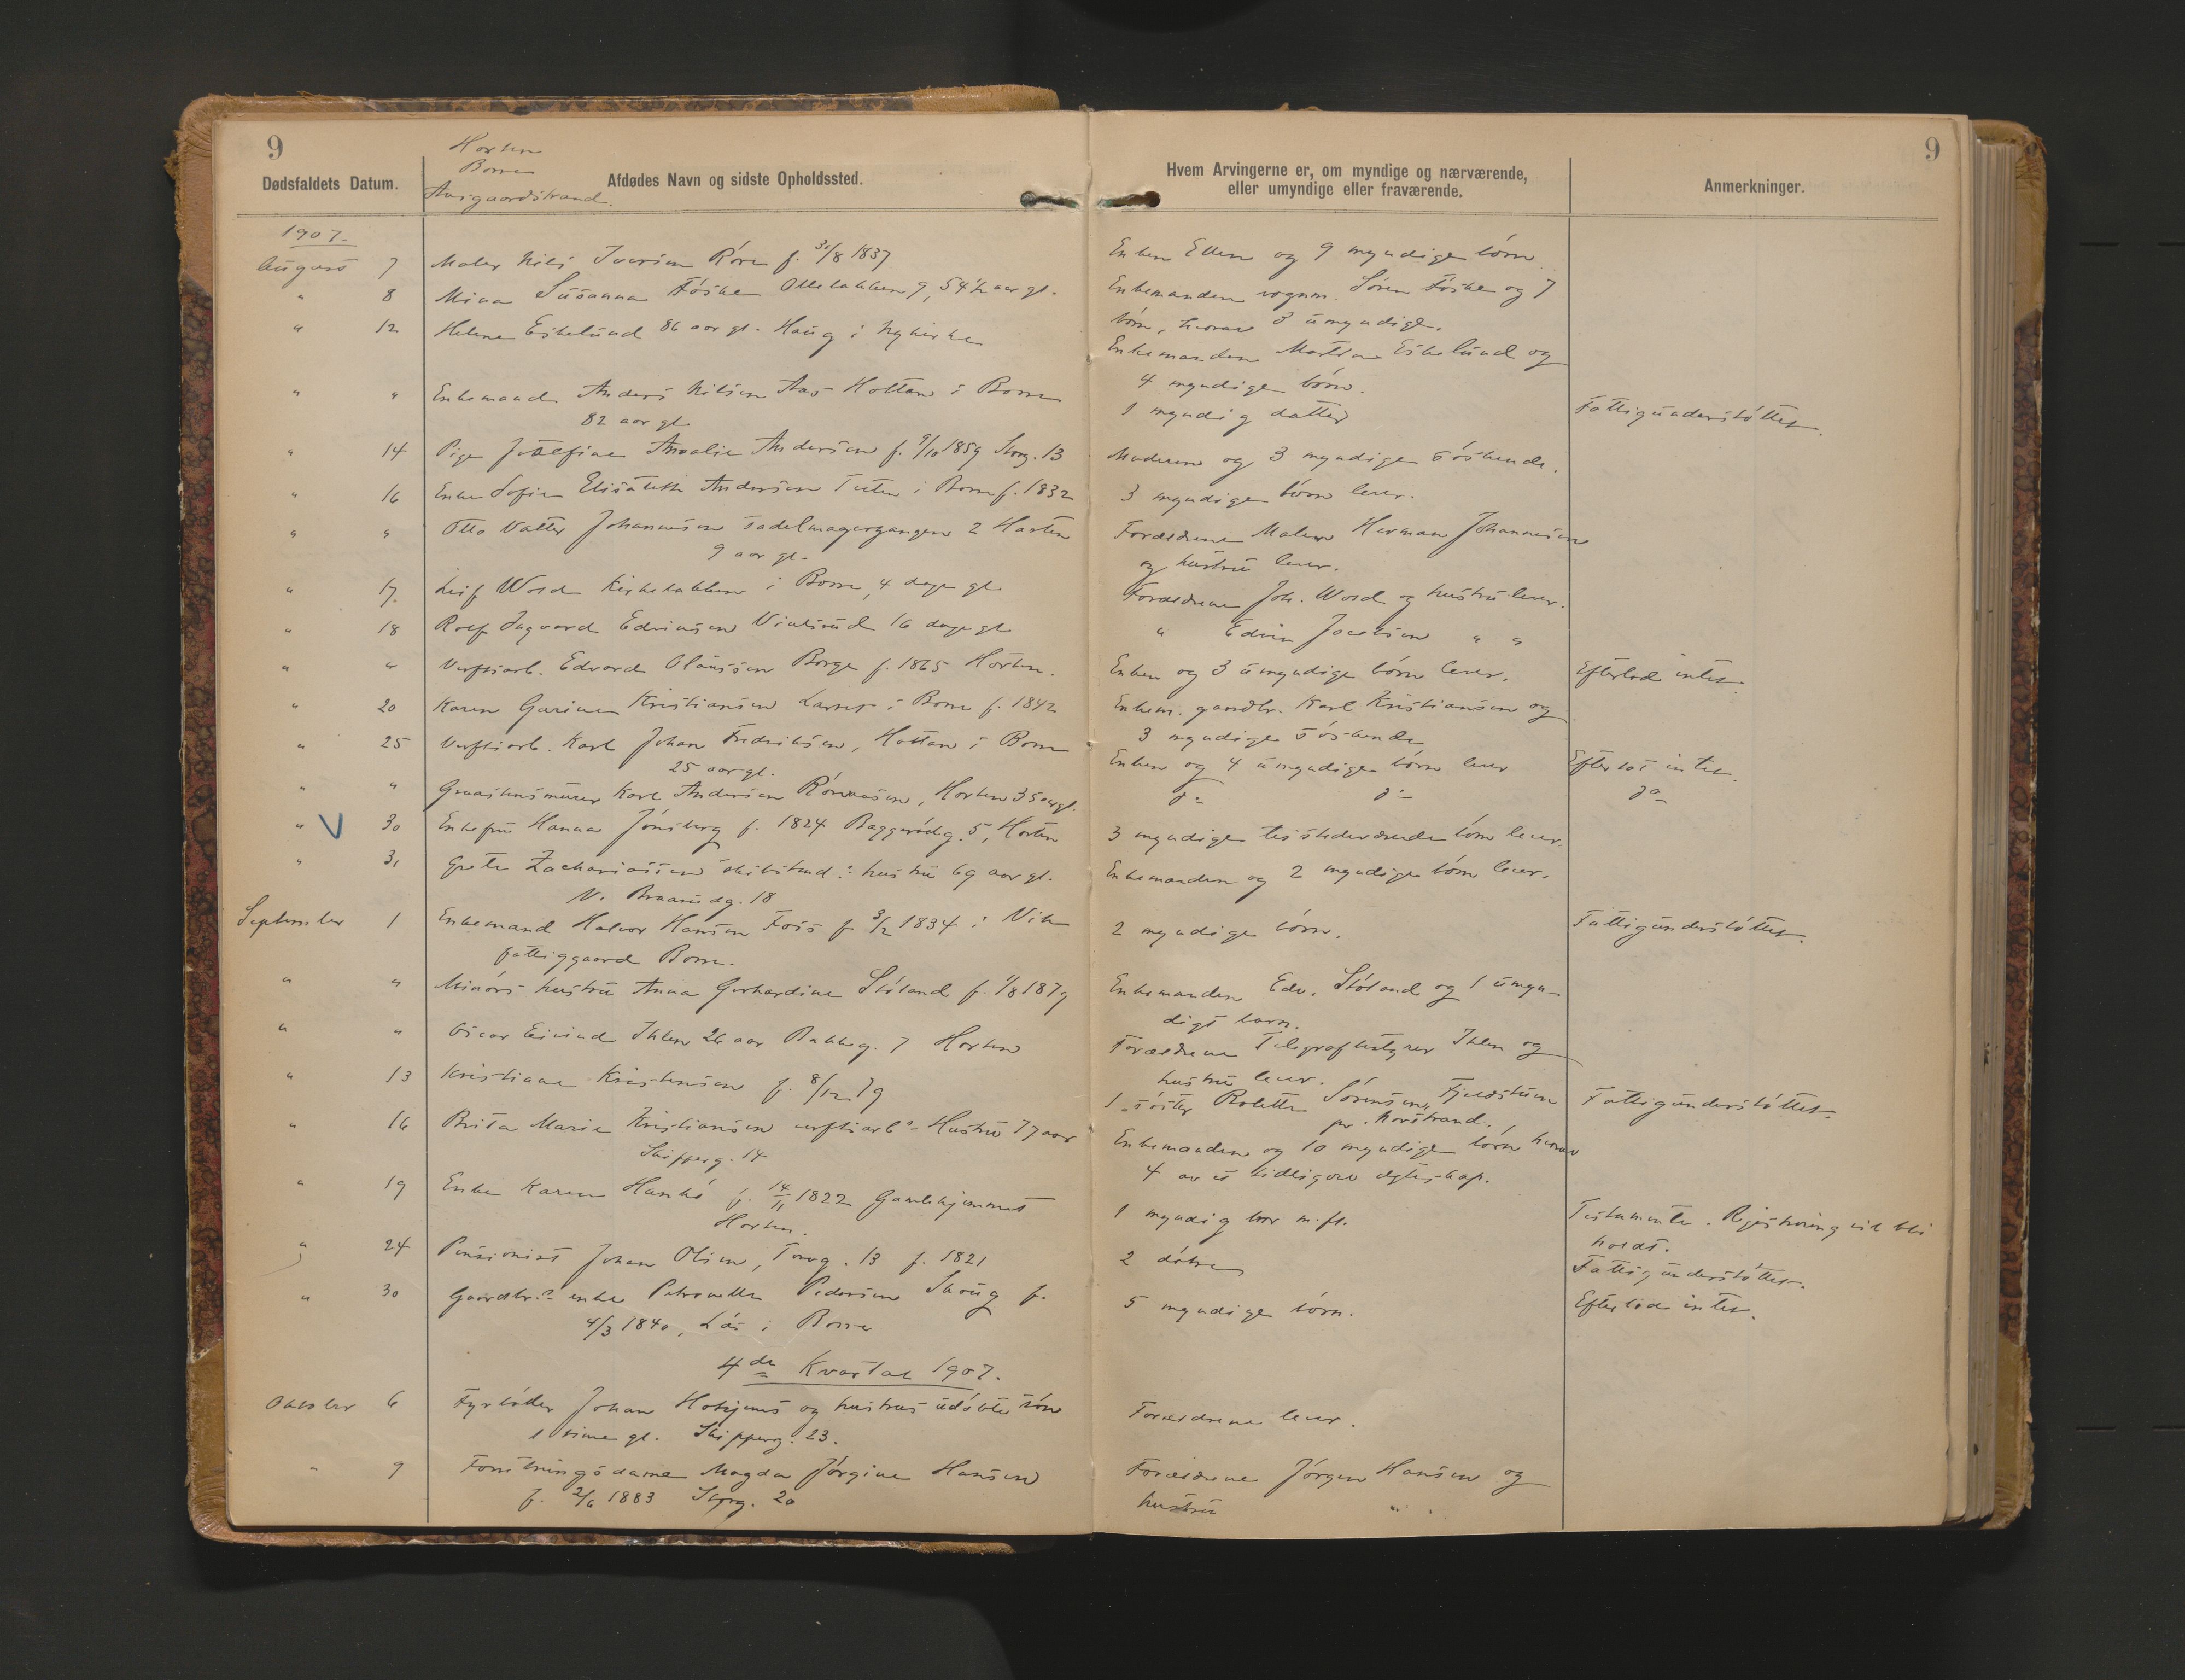 9
Horten
Borre
Aasgaardstrand.
Dødsfaldets Datum.
Afdødes Navn og sidste Opholdssted.
Hvem Arvingerne er, om myndige og nærværende,
eller umyndige eller fraværende.
Anmerkninger.
9
1907.
August 7 Maler Nils Iversen Röre f. 31/8 1837
Enken Ellen og 9 myndige börn
" 8 Mina Susanna Föske Ollelökken 9, 54 1/2 aar gl.
Enkemanden vognm. Sören Föske og 7
börn, hvorav 3 umyndige.
" 12 Helene Eskelund 86 aar gl. Haug i Nykirke
Enkemanden Martin Eskelund og
4 myndige börn.
" " Enkemand Anders Nilsen Aas Holtan i Borre
82 aar gl.
1 myndig datter
Fattigunderstöttet.
" 14 Pige Josefine Amalie Andersen f. 9/10 1859 Storg. 13
Moderen og 3 myndige söskende.
" 16 Enke Sofie Elisabeth Andersen i Borre f. 1832
3 myndige börn lever.
" " Otto Valter Johannesen Sadelmagergangen 2 Horten
9 aar gl.
Forældrene Maler Herman Johannesen
og hustru lever.
" 17 Leif Wold Kirkebakken i Borre, 4 dage gl
Forældrene Joh. Wold og hustru lever.
" 18 Rolf Ingvard Edvinsen 16 dage gl
" Edvin Jacobsen " "
" " Verftsarb. Edvard Olaussen Borge f. 1865 Horten.
Enken og 3 umyndige börn lever.
Efterlod intet.
" 20 Karen Gurine Kristiansen i Borre f. 1842
Enkem. gaardbr. Karl Kristiansen og
3 myndige söskende
" 25 Verftsarb. Karl Johan Fredriksen, Holtan i Borre
25 aar gl.
Enken og 4 umyndige börn lever
Efterlot intet.
" " Graastensmurer Karl Andersen, Horten 35 aar gl.
do do
do
" V 30 Enkefru Hanna Jönsberg f. 1824 Baggerödg. 5, Horten
3 myndige tilstedeværende börn lever.
" 31 Grete Zachariassen skibstmd.s hustru 69 aar gl.
N. Braarudg. 18
Enkemanden og 2 myndige börn lever.
September 1 Enkemand Halvor Hansen Foss f 3/2 1834 i Vik
fattiggaard Borre.
2 myndige börn.
Fattigunderstöttet.
" " Minörs hustru Anna Gerhardine Stöland f. 1/8 1879
Enkemanden Edv. Stöland og 1 umyn-
digt barn.
" " Oscar Eivind Ihlen 26 aar Bakkeg. 7 Horten
Forældrene Telegrafbestyrer Ihlen og
hustru lever.
" 13 Kristiane Kristensen f. 8/12 79
1 söster Rolette Sörensen, Fjeldstuen
pr. Korstrand.
Fattigunderstöttet.
" 16 Brita Marie Kristiansen verftsarb.s Hustru 77 aar
Skipperg. 14
Enkemanden og 10 myndige börn hvorav
4 av et tidligere ægteskap.
" 19 Enke Karen Hankö f. 14/11 1822 Gamlehjemmet
Horten.
1 myndig bror m. fl.
Testamente. Registrering vil bli
holdt.
" 24 Pensionist Johan Olsen, Torvg. 13 f. 1821
2 dötre
Fattigunderstöttet.
" 30 Gaardbr.s enke Petronelle Pedersen Skoug f.
4/3 1840, i Borre
5 myndige börn.
Efterlod intet.
4de Kvartal 1907.
Oktober 6 Fyrböder Johan og hustrus udöbte sön
1 time gl. Skipperg. 23.
Forældrene lever.
" 9 Forretningsdame Magda Jörgine Hansen
f. 2/6 1883 Storg. 20
Forældrene Jörgen Hansen og
hustru " "